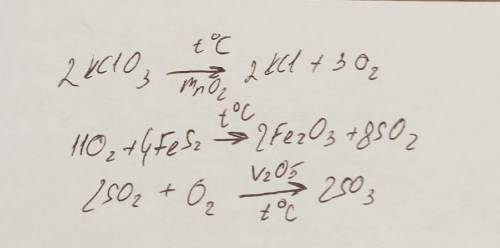 2KClO₃ →(t°C, MnO₂) 2KCl + 3O₂
11O₂ + 4FeS₂ →(t°C) 2Fe₂O₃ + 8SO₂
2SO₂ + O₂ →(V₂O₅, t°C) 2SO₃